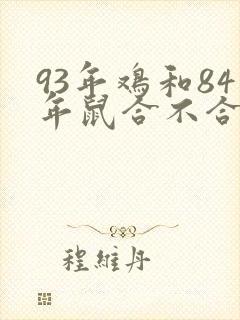 93年鸡和84
年鼠合不合
程維丹